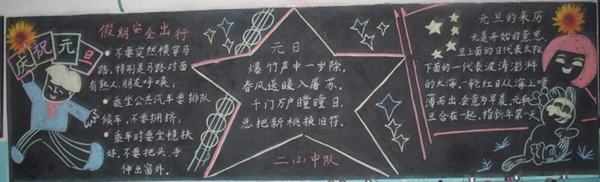 庆祝元旦
假期安全出行
• 不要突然横穿马
路,特别是马路对面
有熟人、朋友呼唤,
• 乘坐公共汽车要排队
候车,不要拥挤,
• 乘车时要坐稳扶
好,不要把头、手
伸出窗外。
元日
爆竹声中一岁除,
春风送暖入屠苏。
千门万户曈曈日,
总把新桃换旧符。
二(4)中队
元旦的来历
元是开始的意思
旦上面的日代表太阳
下面的一代表波涛澎湃
的大海,一轮红日从海上喷
薄而出